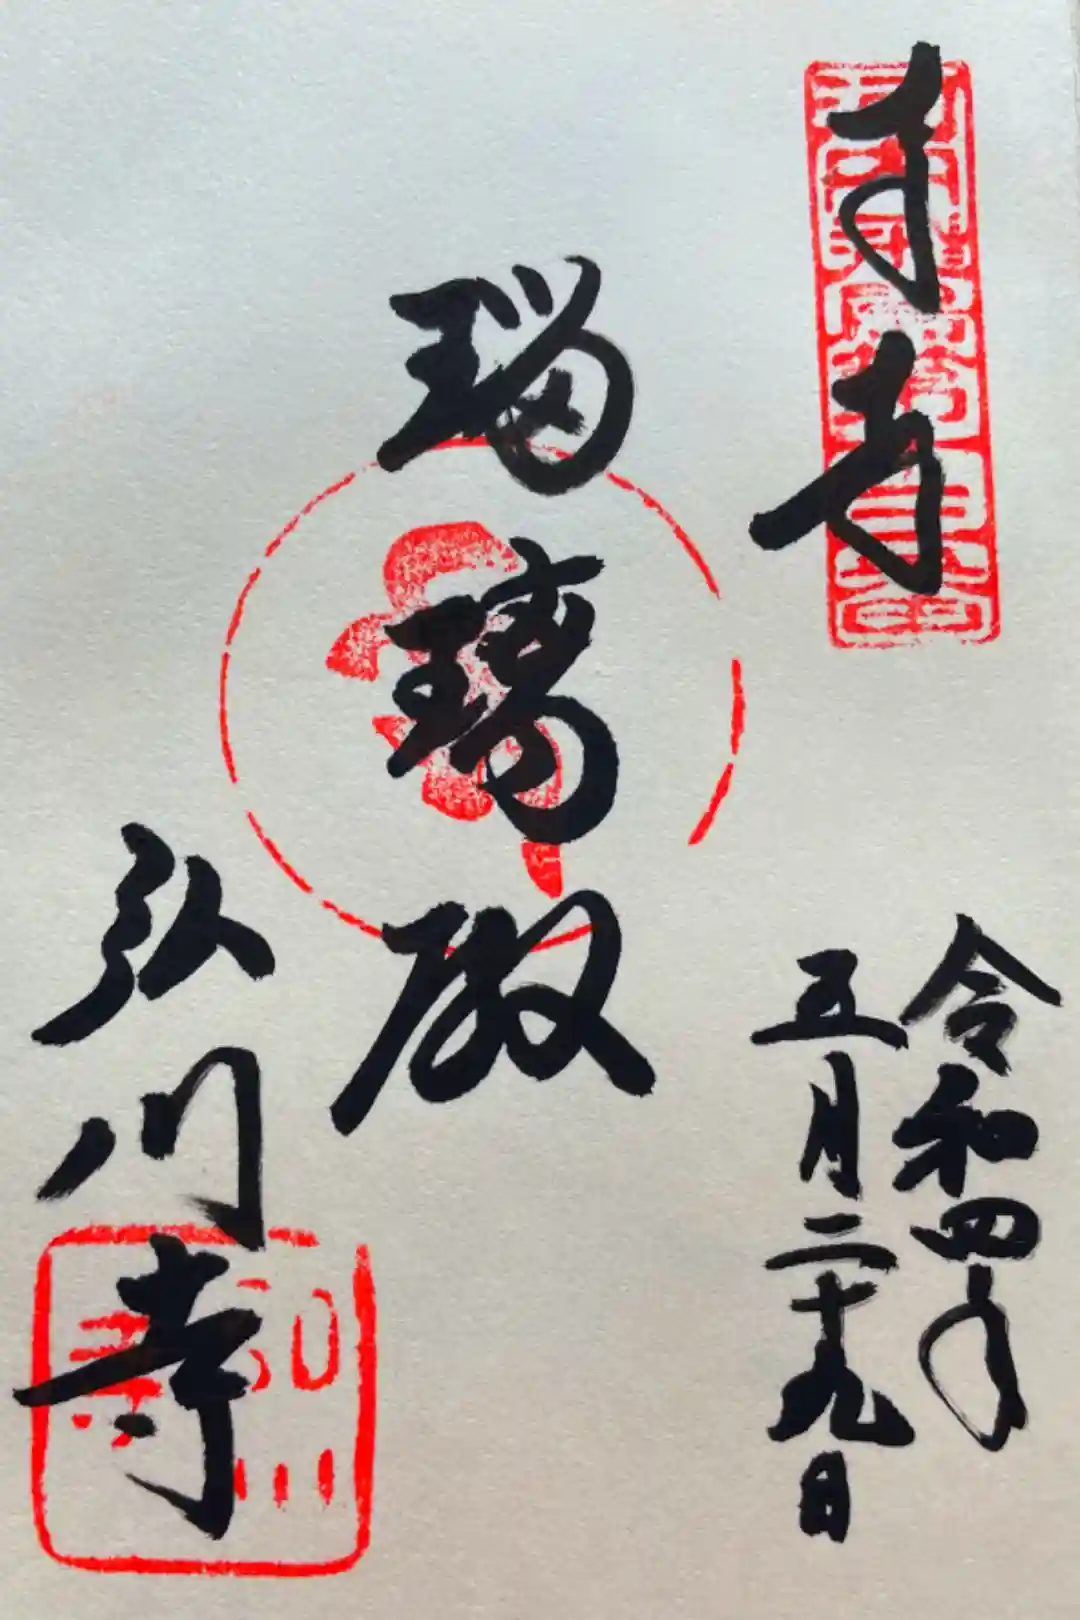 奉拝
令和四年
五月二十九日
瑠璃殿
弘川寺